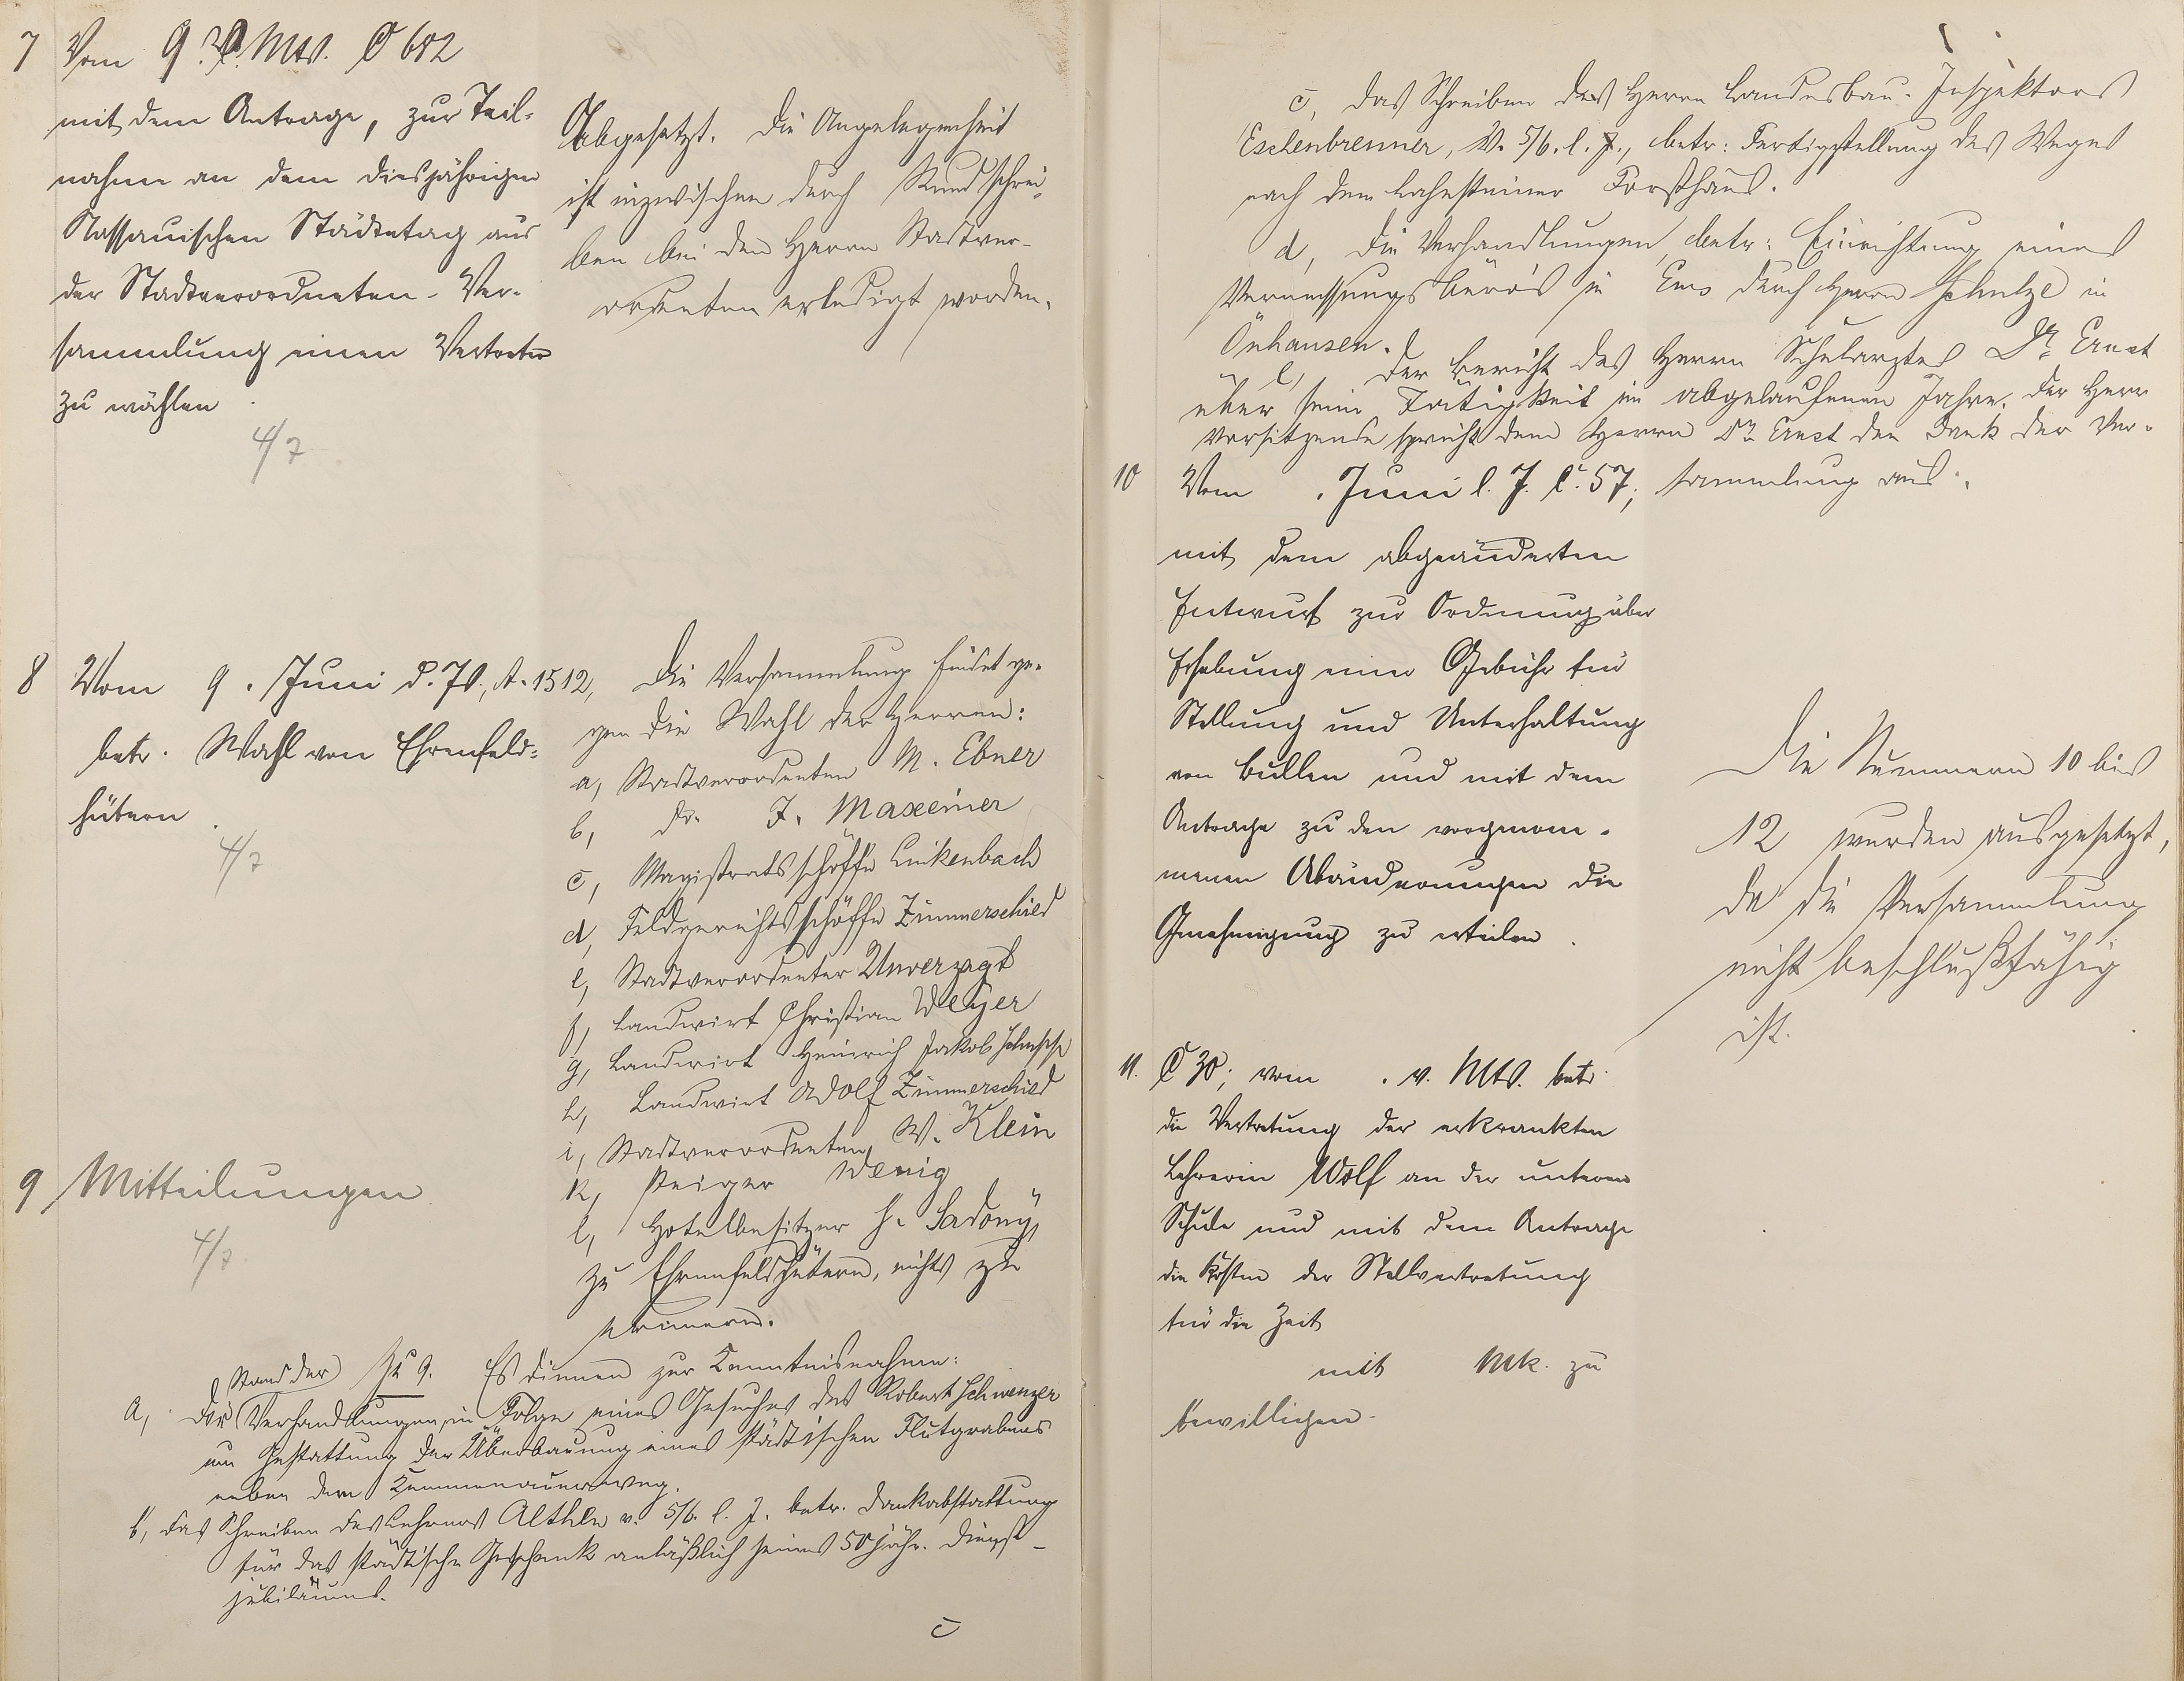 7 Vom 9. v. Mts. C 682
mit dem Antrage, zur Teil-
nahme an dem diesjährigen
Nassauischen Städtetag aus
der Stadtverordneten-Ver-
sammlung einen Vertreter
zu wählen.
4/7
Abgesetzt. Die Angelegenheit
ist inzwischen durch Rundschrei-
ben bei den Herrn Stadtver-
ordneten erledigt worden.
8 Vom 9. Juni d. Js., A. 1512,
betr. Wahl von Ehrenfeld-
hütern.
4/7
Die Versammlung findet ge-
gen die Wahl der Herren:
a, Stadtverordneten M. Ebner
b, do. J. Maxeiner
c, Magistratsschöffe Linkenbach
d, Feldgerichtsschöffe Zimmerschied
e, Stadtverordneter Unverzagt
f, Landwirt Christian Weyer
g, Landwirt Heinrich Jakob
h, Landwirt Adolf Zimmerschied
i, Stadtverordneten W. Klein
k, Steiger Wenig
l, Hotelbesitzer H. Sadony,
zu Ehrenfeldhütern, nichts zu
erinnern.
9 Mitteilungen
4/7
Zu 9. Es dienen zur Kenntnisnahme:
Stand der
a, die Verhandlungen, in Folge eines Gesuches des Robert Schwenzer
um Gestattung der Überbauung eines städtischen Flutgrabens
neben dem Kemmenauerweg.
b, das Schreiben des Lehrers Althen v. 5/6. l. J. betr. Dankabstattung
für das städtische Geschenk anläßlich seines 50jähr. Dienst-
jubiläums.
c
c, das Schreiben des Herrn Landesbau-Inspektors
Eschenbrenner, v. 5/6. l. J., betr: Fertigstellung des Weges
nach dem Lahnsteiner Forsthaus.
d, die Verhandlungen, betr: Einrichtung eines
Vermessungsbüros in Ems durch Herrn Schulze in
Önhausen.
e, der Bericht des Herrn Schularztes Dr. Ernst
über seine Tätigkeit im abgelaufenen Jahre. Der Herr
Vorsitzende spricht dem Herrn Dr. Ernst den Dank der Ver-
sammlung aus.
10 Vom . Juni l. J. C. 57,
mit dem abgeänderten
Entwurf zur Ordnung über
Erhebung einer Gebühr für
Stellung und Unterhaltung
von Bullen und mit dem
Antrage zu den vorgenom-
menen Abänderungen die
Genehmigung zu erteilen.
Die Nummern 10 bis
12 wurden ausgesetzt,
da die Versammlung
nicht beschlußfähig
ist.
11. C 30; vom . v. Mts. betr.
die Vertretung der erkrankten
Lehrerin Wolf an der unteren
Schule und mit dem Antrage
die Kosten der Stellvertretung
für die Zeit
mit Mk. zu
bewilligen.